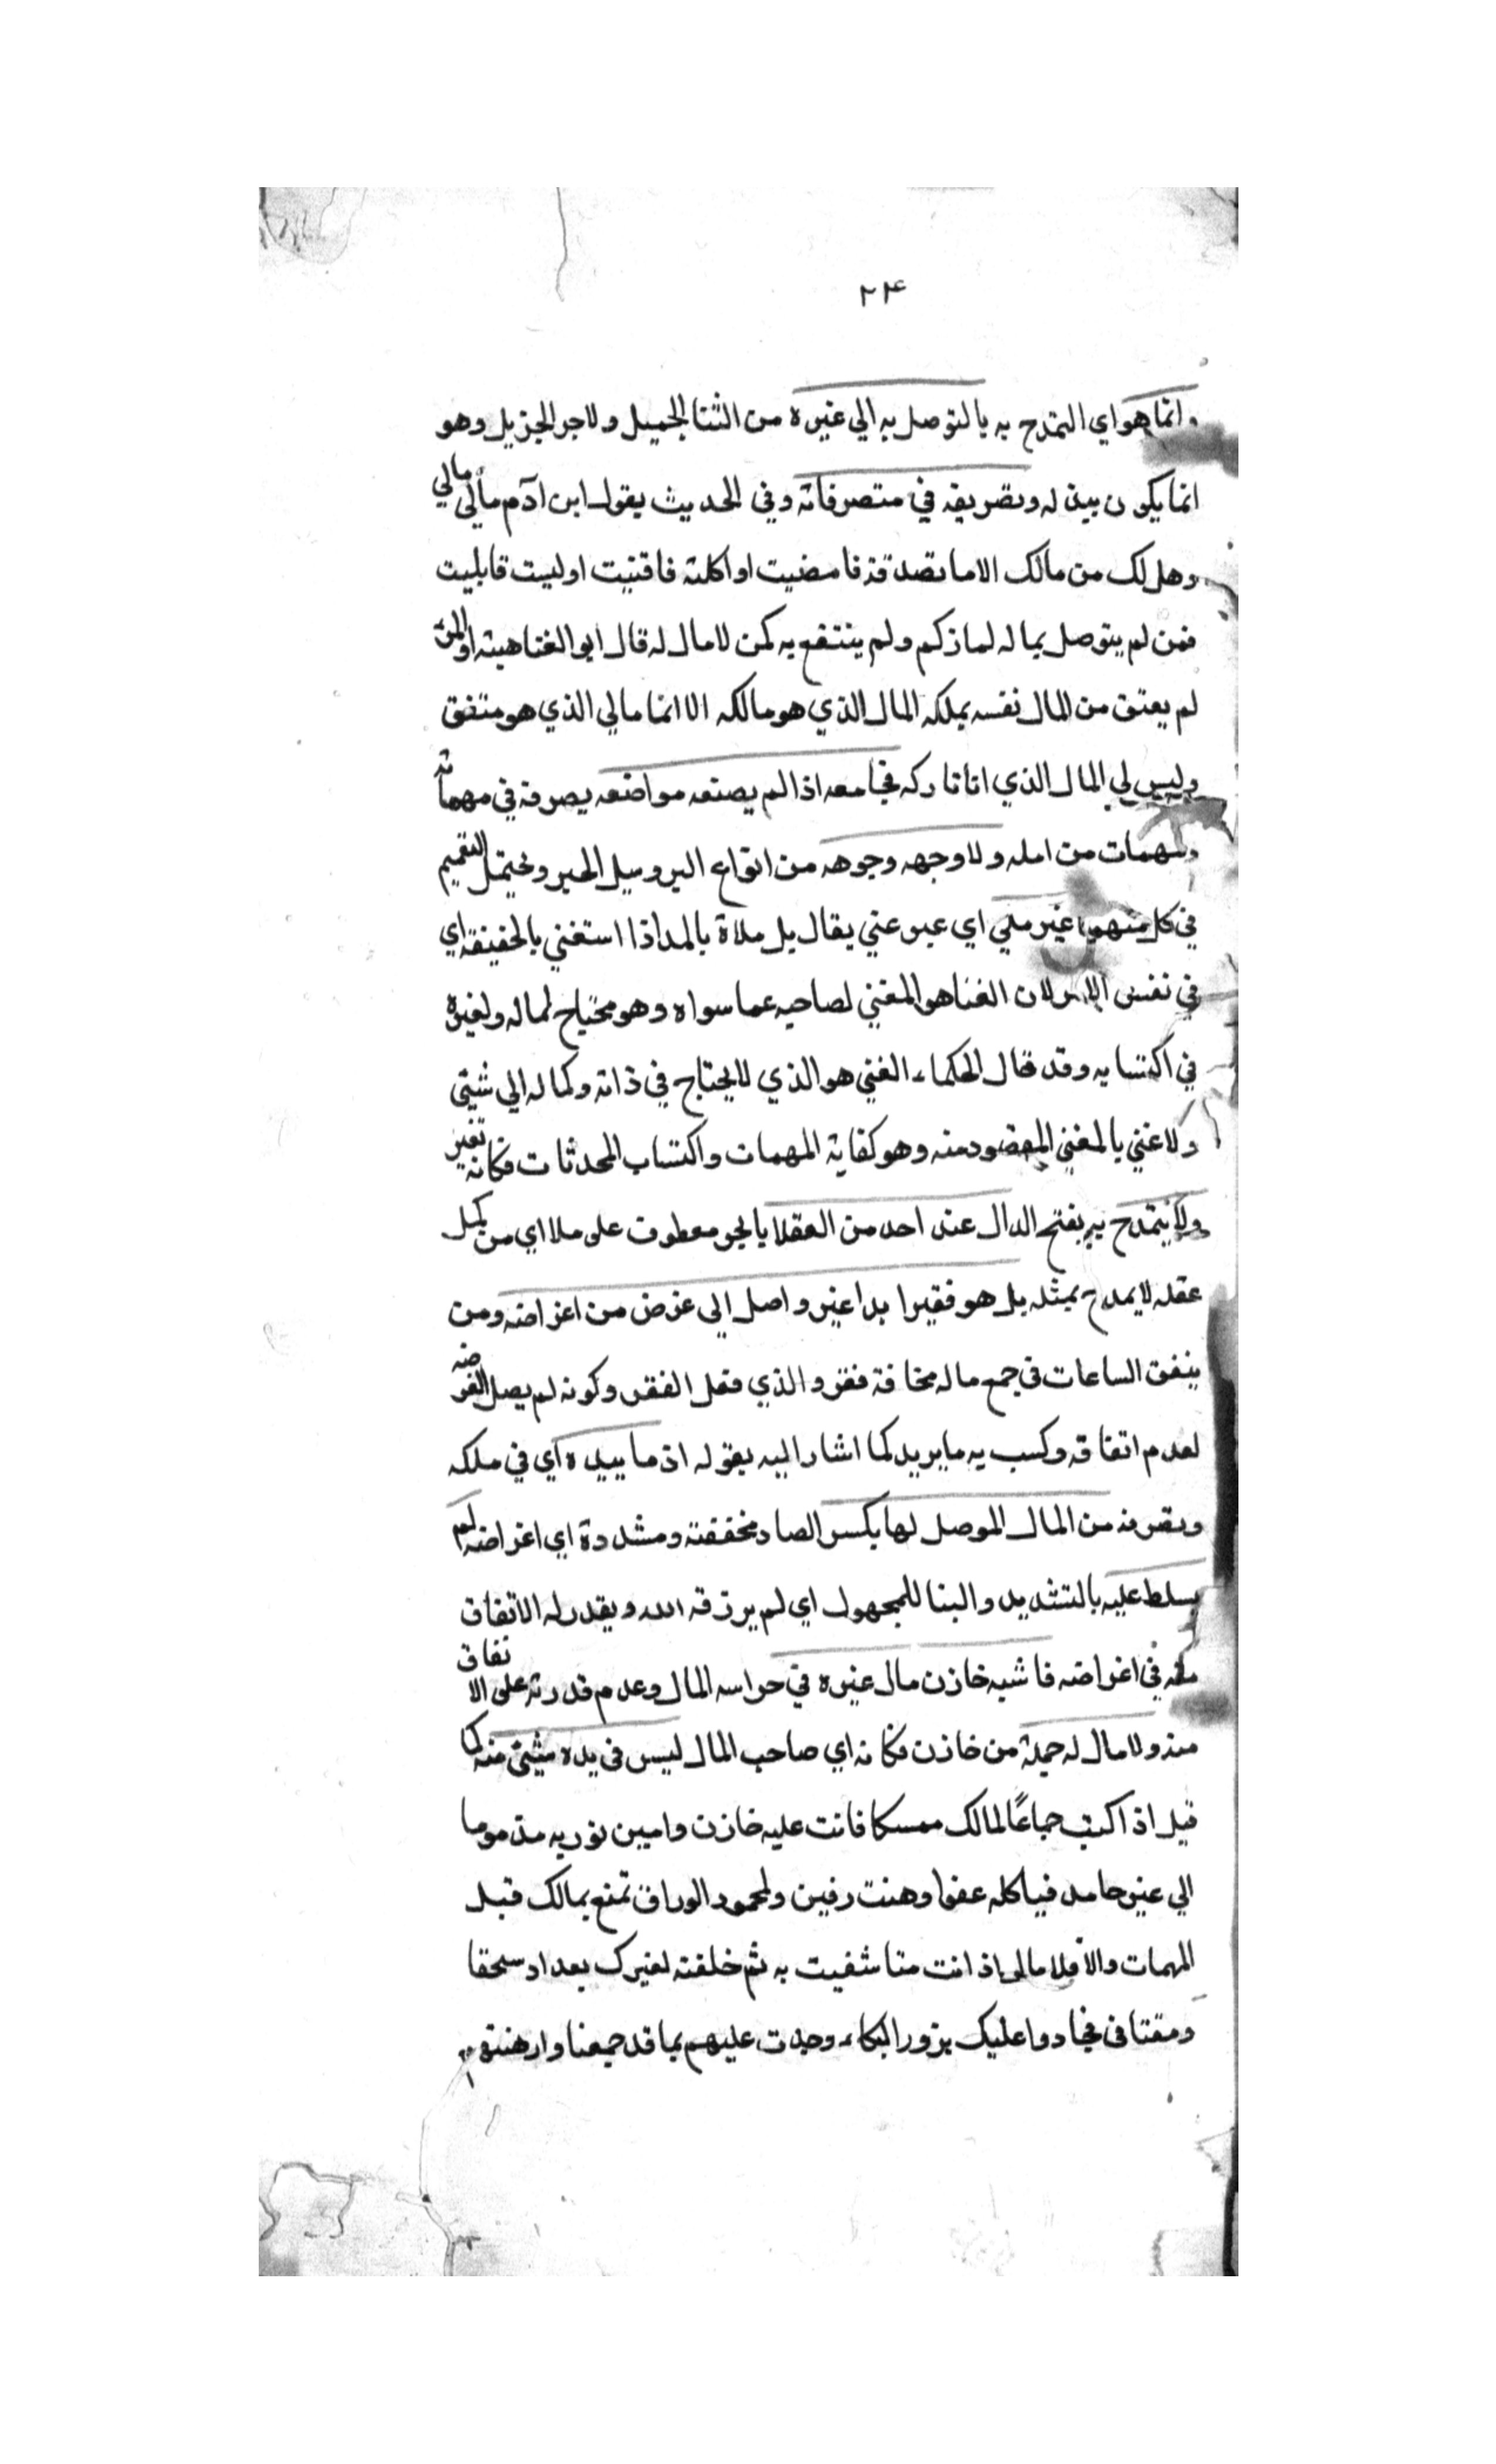 ٢٤
وانما هو اي التمدح به بالتوصل به الي غيره من الثنا الجميل ولاجر الجزيل وهو
انما يكون ببذله وتصريفه في متصرفاته وفي الحديث يقول ابن ادم مالي مالي
وهل لك من مالك الا ما تصدقة فامضيت او اكلته فافنيت او لبست فابليت
فمن لم يتوصل بماله لما زكم ولم ينتفع به كمن لا مال له قال ابو العتاهيته اذا المرء
لم يعتق من المال نفسه يملكه المال الذي هو مالكه الا انما مالي الذي هو منفق
وليس لي المال الذي انا تاركه فجامعه اذا لم يصنعه مواضعه يصرفه في مهماته
ومهمات من امله ولا وجهه وجوهه من انواع البر وسبل الخير ويحتمل التعميم
في كل منهما غير ملي اي غير غني يقال بل ملاة بالمد اذا استغني بالحقيقة اي
في نفس الامر لان الغنا هو المغني لصاحبه عما سواه وهو محتاج لماله ولغيره
في اكتسابه وقد قال الحكماء الغني هو الذي لا يحتاج في ذاته وكماله الي شيئ
ولا غني بالمغني المقصود منه وهو كفاية المهمات واكتساب المحدثات فكانه فقير
ولا يتمدح به بفتح الدال عند احد من العقلا بالجر معطوف على ملا اي من كمل
عقله لا يمدح بمثله بل هو فقيرا بدا غير واصل الي غرض من اغراضه ومن
ينفق الساعات في جمع ماله مخافة فقر والذي فعل الفقر وكونه لم يصل الغرضه
لعدم اتفاقه وكسب به ما يريد كما اشار اليه بقوله اذ ما بيده اي في ملكه
وتصرفه من المال الموصل لها بكسر الصاد مخففته ومشددة اي اغراضه لم
يسلط عليه بالتشديد والبنا للمجهول اي لم يرزقه الله ويقدر له الاتفاق
منه في اغراضه فاشبه خازن مال غيره في حراسه المال وعدم قدرته على الاتفاق
منه ولا مال له جملة من خازن فكانه اي صاحب المال ليس في يده شيئ منه كما
قيل اذا كنت جماعًا لمالك ممسكا فانت عليه خازن وامين نوريه مذموما
الي غير حامد فياكله عفوا وهنت رفين ولمحمود الوراق تمتع بمالك قبل
المهمات والا فلا مالي اذ انت متا شفيت به ثم خلفته لغيرك بعدا وسحقا
ومقتا في فجادوا عليك بزور البكاء وجدت عليهم بما قد جمعنا وارهنتهم